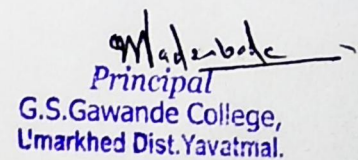 Principal
G.S.Gawande College,
Umarkhed Dist.Yavatmal.